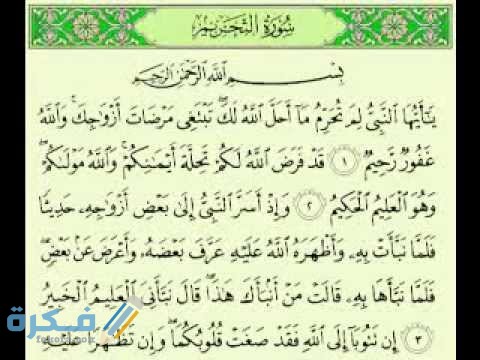 سُورَةُ التَّحْرِيمِ
بِسْمِ اللَّهِ الرَّحْمَٰنِ الرَّحِيمِ
يَٰٓأَيُّهَا ٱلنَّبِيُّ لِمَ تُحَرِّمُ مَآ أَحَلَّ ٱللَّهُ لَكَۖ تَبْتَغِى مَرْضَاتَ أَزْوَٰجِكَۚ وَٱللَّهُ
غَفُورٌ رَّحِيمٌ ١ قَدْ فَرَضَ ٱللَّهُ لَكُمْ تَحِلَّةَ أَيْمَٰنِكُمْۚ وَٱللَّهُ مَوْلَىٰكُمْۖ
وَهُوَ ٱلْعَلِيمُ ٱلْحَكِيمُ ٢ وَإِذْ أَسَرَّ ٱلنَّبِيُّ إِلَىٰ بَعْضِ أَزْوَٰجِهِۦ حَدِيثًا
فَلَمَّا نَبَّأَتْ بِهِۦ وَأَظْهَرَهُ ٱللَّهُ عَلَيْهِ عَرَّفَ بَعْضَهُۥ وَأَعْرَضَ عَنۢ بَعْضٍۖ
فَلَمَّا نَبَّأَهَا بِهِۦ قَالَتْ مَنْ أَنۢبَأَكَ هَٰذَاۖ قَالَ نَبَّأَنِىَ ٱلْعَلِيمُ ٱلْخَبِيرُ
٣ إِن تَتُوبَآ إِلَى ٱللَّهِ فَقَدْ صَغَتْ قُلُوبُكُمَاۖ وَإِن تَظَٰهَرَا عَلَيْهِ
فكرة